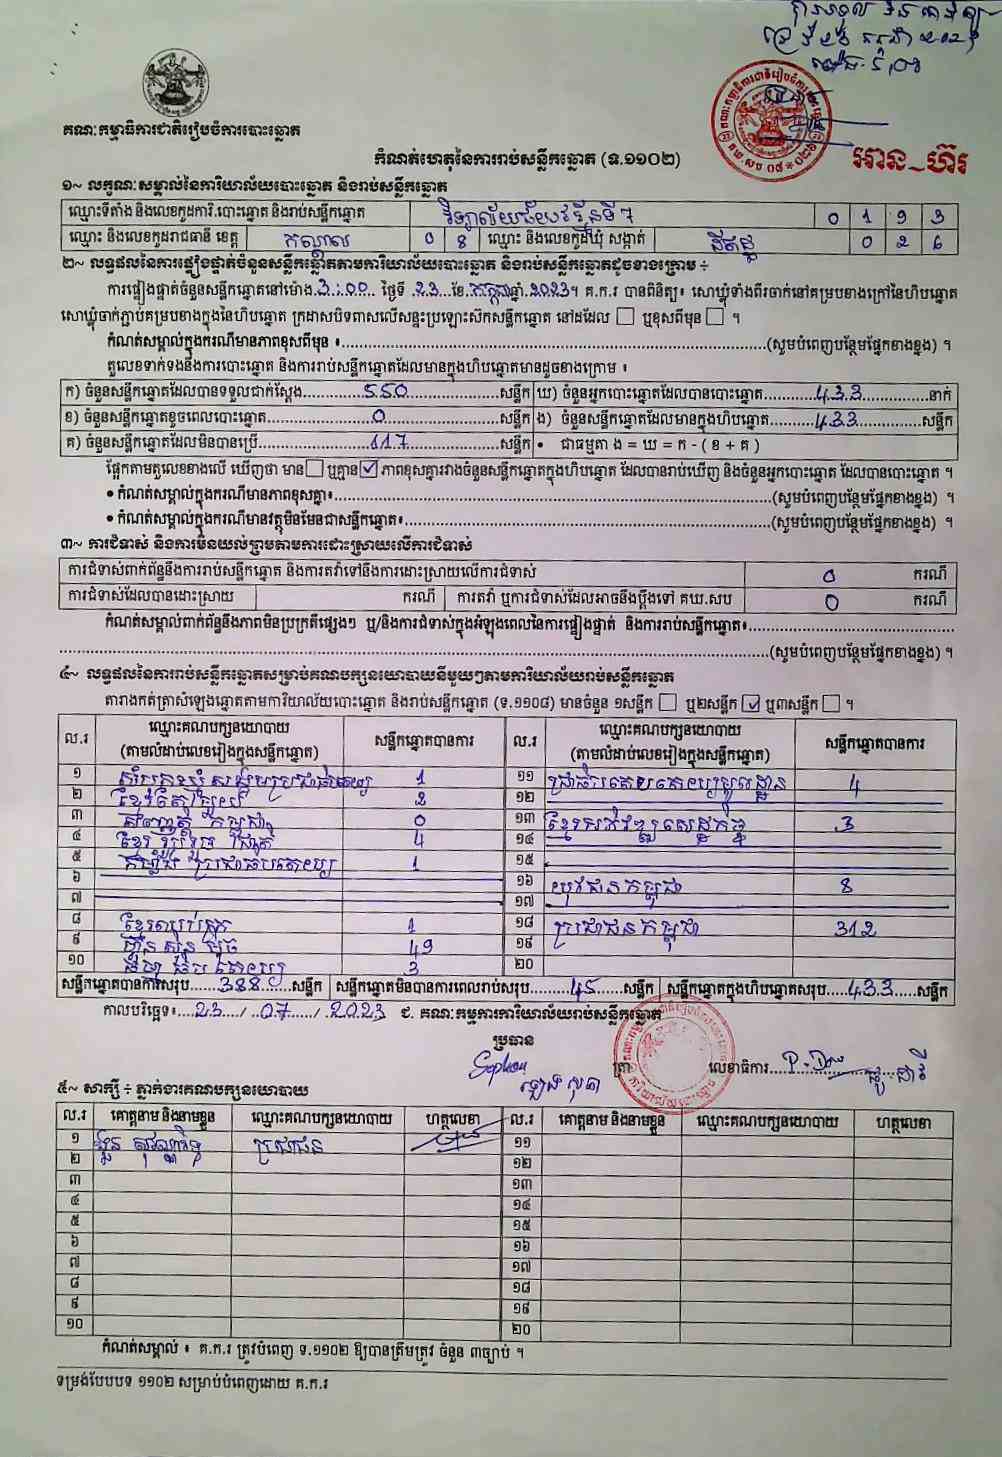 គណៈកម្មាធិការជាតិរៀបចំការបោះឆ្នោត
កំណត់ហេតុនៃការរាប់សន្លឹកឆ្នោត (ទ.១១០២)
អាន-ហ៊រ
១~ លក្ខណៈសម្គាល់នៃការិយាល័យបោះឆ្នោត និងរាប់សន្លឹកឆ្នោត
ឈ្មោះទីតាំង និងលេខកូដការិ.បោះឆ្នោត និងរាប់សន្លឹកឆ្នោត 0 1 9 3
ឈ្មោះ និងលេខកូដរាជធានី ខេត្ត កណ្តាល 0 8 ឈ្មោះ និងលេខកូដឃុំ សង្កាត់ 0 2 6
២~ លទ្ធផលនៃការផ្ទៀងផ្ទាត់ចំនួនសន្លឹកឆ្នោតតាមការិយាល័យបោះឆ្នោត និងរាប់សន្លឹកឆ្នោតដូចខាងក្រោម ÷
ការផ្ទៀងផ្ទាត់ចំនួនសន្លឹកឆ្នោតនៅម៉ោង 3:00 ថ្ងៃទី 23 ខែ កក្កដា ឆ្នាំ 2023។ គ.ក.រ បានពិនិត្យ៖ សោឃ្លុំទាំងពីរចាក់នៅគម្របខាងក្រៅនៃហិបឆ្នោត
សោឃ្លុំចាក់ភ្ជាប់គម្របខាងក្នុងនៃហិបឆ្នោត ក្រដាសបិទពាសលើសន្ទះប្រឡោះស៊កសន្លឹកឆ្នោត នៅដដែល ☐ ឬខុសពីមុន ☐ ។
កំណត់សម្គាល់ក្នុងករណីមានភាពខុសពីមុន ៖ (សូមបំពេញបន្ថែមផ្នែកខាងខ្នង) ។
តួលេខទាក់ទងនឹងការបោះឆ្នោត និងការរាប់សន្លឹកឆ្នោតដែលមានក្នុងហិបឆ្នោតមានដូចខាងក្រោម ៖
ក) ចំនួនសន្លឹកឆ្នោតដែលបានទទួលជាក់ស្តែង 550 សន្លឹក ឃ) ចំនួនអ្នកបោះឆ្នោតដែលបានបោះឆ្នោត 433 នាក់
ខ) ចំនួនសន្លឹកឆ្នោតខូចពេលបោះឆ្នោត 0 សន្លឹក ង) ចំនួនសន្លឹកឆ្នោតដែលមានក្នុងហិបឆ្នោត 433 សន្លឹក
គ) ចំនួនសន្លឹកឆ្នោតដែលមិនបានប្រើ 117 សន្លឹក • ជាធម្មតា ង = ឃ = ក - ( ខ + គ )
ផ្អែកតាមតួលេខខាងលើ ឃើញថា មាន ☐ ឬគ្មាន ☑ ភាពខុសគ្នារវាងចំនួនសន្លឹកឆ្នោតក្នុងហិបឆ្នោត ដែលបានរាប់ឃើញ និងចំនួនអ្នកបោះឆ្នោត ដែលបានបោះឆ្នោត ។
• កំណត់សម្គាល់ក្នុងករណីមានភាពខុសគ្នា៖ (សូមបំពេញបន្ថែមផ្នែកខាងខ្នង) ។
• កំណត់សម្គាល់ក្នុងករណីមានវត្ថុមិនមែនជាសន្លឹកឆ្នោត៖ (សូមបំពេញបន្ថែមផ្នែកខាងខ្នង) ។
៣~ ការជំទាស់ និងការមិនយល់ព្រមតាមការដោះស្រាយលើការជំទាស់
ការជំទាស់ពាក់ព័ន្ធនឹងការរាប់សន្លឹកឆ្នោត និងការតវ៉ាទៅនឹងការដោះស្រាយលើការជំទាស់ 0 ករណី
ការជំទាស់ដែលបានដោះស្រាយ ករណី ការតវ៉ា ឬការជំទាស់ដែលអាចនឹងប្តឹងទៅ គឃ.សប 0 ករណី
កំណត់សម្គាល់ពាក់ព័ន្ធនឹងភាពមិនប្រក្រតីផ្សេងៗ ឬ/និងការជំទាស់ក្នុងអំឡុងពេលនៃការផ្ទៀងផ្ទាត់ និងការរាប់សន្លឹកឆ្នោត៖
(សូមបំពេញបន្ថែមផ្នែកខាងខ្នង) ។
៤~ លទ្ធផលនៃការរាប់សន្លឹកឆ្នោតសម្រាប់គណបក្សនយោបាយនីមួយៗតាមការិយាល័យរាប់សន្លឹកឆ្នោត
តារាងកត់ត្រាសំឡេងឆ្នោតតាមការិយាល័យបោះឆ្នោត និងរាប់សន្លឹកឆ្នោត (ទ.១១០៨) មានចំនួន ១សន្លឹក ☐ ឬ២សន្លឹក ☑ ឬ៣សន្លឹក ☐ ។
ល.រ ឈ្មោះគណបក្សនយោបាយ (តាមលំដាប់លេខរៀងក្នុងសន្លឹកឆ្នោត) សន្លឹកឆ្នោតបានការ ល.រ ឈ្មោះគណបក្សនយោបាយ (តាមលំដាប់លេខរៀងក្នុងសន្លឹកឆ្នោត) សន្លឹកឆ្នោតបានការ
១ 1 ១១ 4
២ 2 ១២
៣ 0 ១៣ ខ្មែរអភិវឌ្ឍន៍សេដ្ឋកិច្ច 3
៤ ខ្មែររួបរួមជាតិ 4 ១៤
៥ កម្លាំងប្រជាធិបតេយ្យ 1 ១៥
៦ ១៦ យុវជនកម្ពុជា 8
៧ ១៧
៨ ខ្មែរឈប់ក្រ 1 ១៨ ប្រជាជនកម្ពុជា 312
៩ ហ៊្វុនស៊ិនប៉ិច 49 ១៩
១០ 3 ២០
សន្លឹកឆ្នោតបានការសរុប 388 សន្លឹក សន្លឹកឆ្នោតមិនបានការពេលរាប់សរុប 45 សន្លឹក សន្លឹកឆ្នោតក្នុងហិបឆ្នោតសរុប 433 សន្លឹក
កាលបរិច្ឆេទ៖ 23 / 07 / 2023 ជ. គណៈកម្មការការិយាល័យរាប់សន្លឹកឆ្នោត
ប្រធាន
ត្រា លេខាធិការ
៥~ សាក្សី ÷ ភ្នាក់ងារគណបក្សនយោបាយ
ល.រ គោត្តនាម និងនាមខ្លួន ឈ្មោះគណបក្សនយោបាយ ហត្ថលេខា ល.រ គោត្តនាម និងនាមខ្លួន ឈ្មោះគណបក្សនយោបាយ ហត្ថលេខា
១ ប្រជាជន ១១
២ ១២
៣ ១៣
៤ ១៤
៥ ១៥
៦ ១៦
៧ ១៧
៨ ១៨
៩ ១៩
១០ ២០
កំណត់សម្គាល់ ៖ គ.ក.រ ត្រូវបំពេញ ទ.១១០២ ឱ្យបានត្រឹមត្រូវ ចំនួន ៣ច្បាប់ ។
ទម្រង់បែបបទ ១១០២ សម្រាប់បំពេញដោយ គ.ក.រ